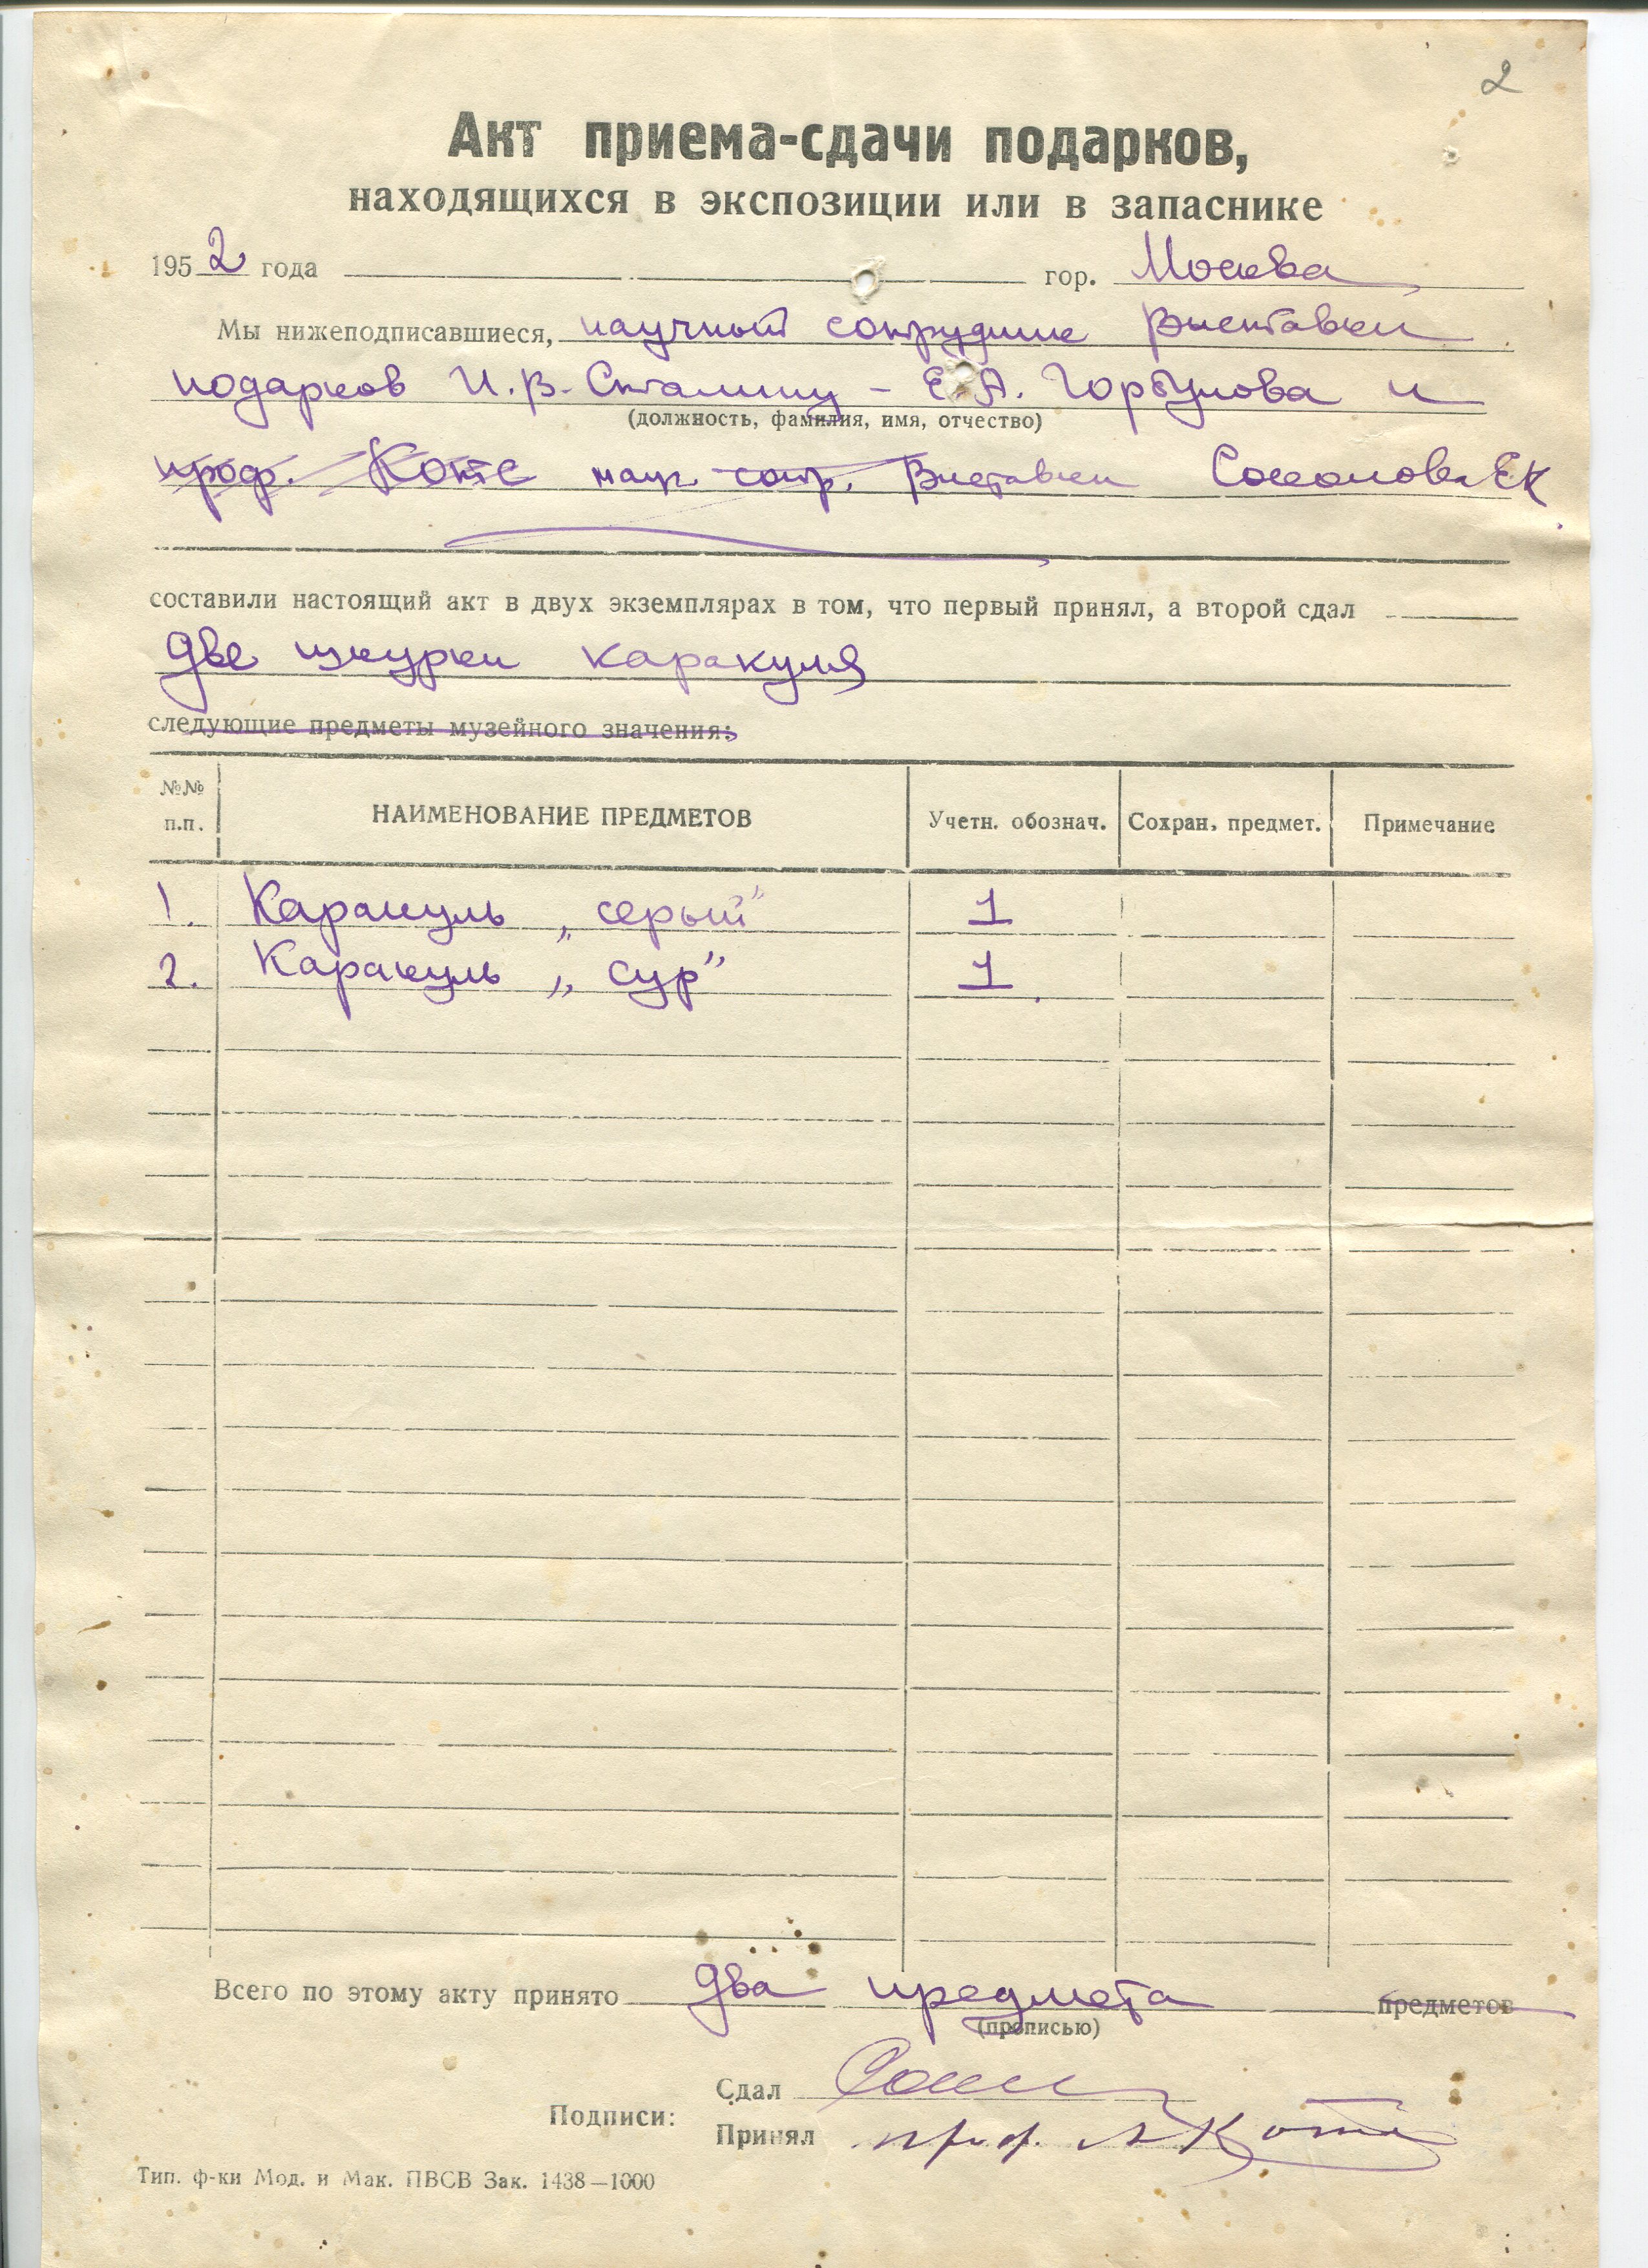 2
Акт приема-сдачи подарков,
находящихся в экспозиции или в запаснике
1952 года гор. Москва
Мы нижеподписавшиеся, научный сотрудник Выставки
подарков И.В. Сталину – Е.А. Горбунова и
(должность, фамилия, имя, отчество)
проф. Котс научн. сотр. Выставки Соколова ЕК
составили настоящий акт в двух экземплярах в том, что первый принял, а второй сдал
две шкурки каракуля
следующие предметы музейного значения:
№№ п.п. НАИМЕНОВАНИЕ ПРЕДМЕТОВ Учетн. обознач. Сохран. предмет. Примечание
1. Каракуль „серый" 1
2. Каракуль „сур" 1
Всего по этому акту принято два предмета предметов
(прописью)
Сдал
Подписи:
Принял проф. А Котс
Тип. ф-ки Мод. и Мак. ПВСВ Зак. 1438—1000